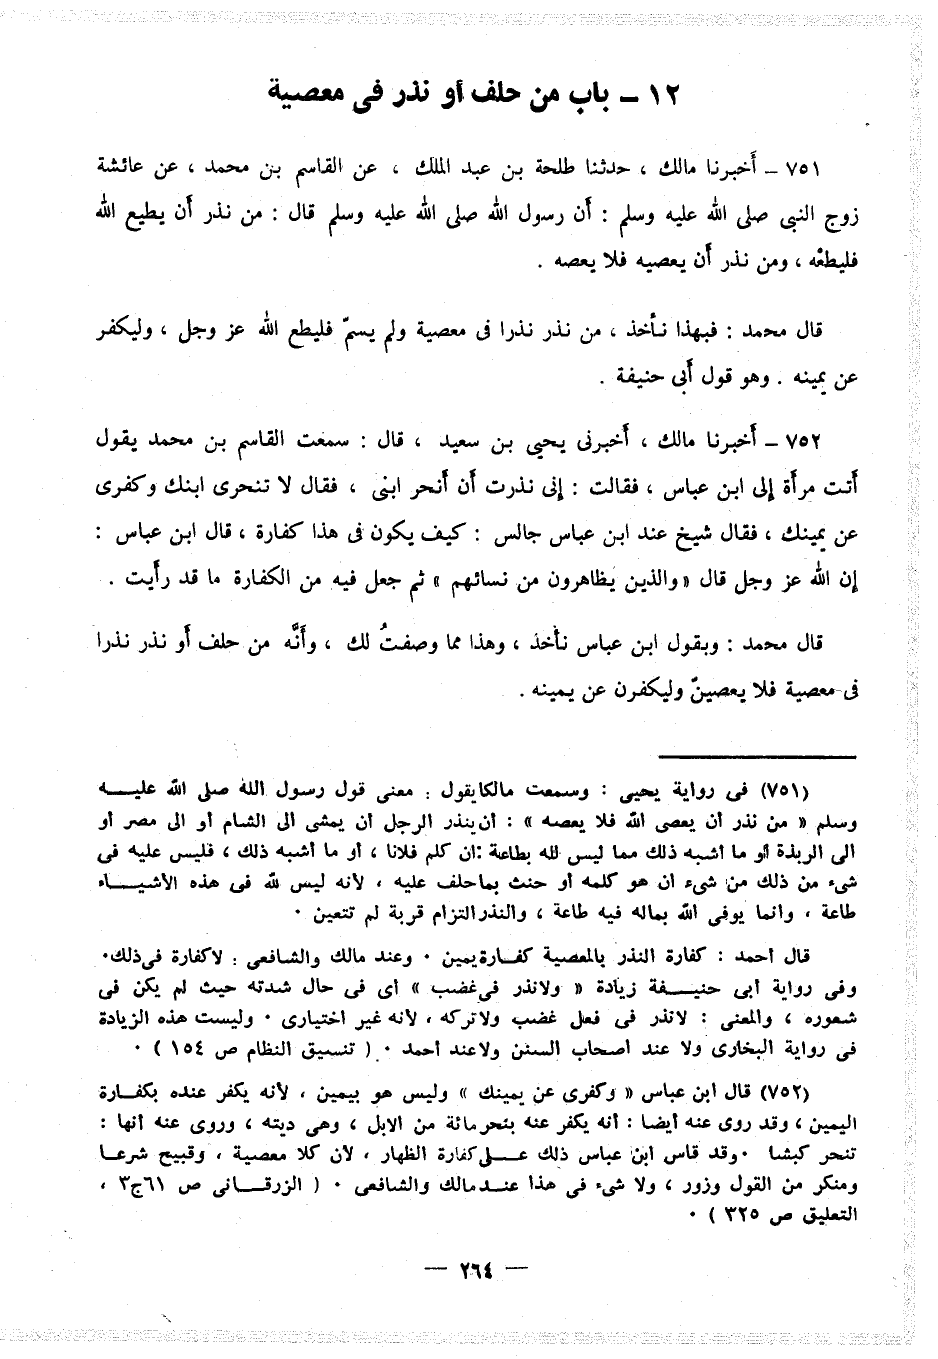 ١٢ – باب من حلف أو نذر فى معصية
٧٥١ – أَخبرنا مالك ، حدثنا طلحة بن عبد الملك ، عن القاسم بن محمد ، عن عائشة
زوج النبى صلى الله عليه وسلم : أَن رسول الله صلى الله عليه وسلم قال : من نذر أَن يطيع الله
فليطعْه ، ومن نذر أَن يعصيه فلا يعصه .
قال محمد : فبهذا نأْخذ ، من نذر نذرا فى معصية ولم يسمّ فليطع الله عز وجل ، وليكفر
عن يمينه . وهو قول أَبى حنيفة .
٧٥٢ – أَخبرنا مالك ، أَخبرنى يحيى بن سعيد ، قال : سمعت القاسم بن محمد يقول
أَتت مرأَة إلى ابن عباس ، فقالت : إنى نذرت أَن أَنحر ابنى ، فقال لا تنحرى ابنك وكفرى
عن يمينك ، فقال شيخ عند ابن عباس جالس : كيف يكون فى هذا كفارة ، قال ابن عباس :
إن الله عز وجل قال «والذين يظاهرون من نسائهم» ثم جعل فيه من الكفارة ما قد رأَيت .
قال محمد : وبقول ابن عباس نأْخذ ، وهذا مما وصفتُ لك ، وأَنَّه من حلف أَو نذر نذرا
فى معصية فلا يعصينّ وليكفرن عن يمينه .
(٧٥١) فى رواية يحيى : وسمعت مالكا يقول : معنى قول رسول الله صلى الله عليـــه
وسلم « من نذر أن يعصى الله فلا يعصه » : أن ينذر الرجل أن يمشى الى الشام أو الى مصر أو
الى الربذة أو ما أشبه ذلك مما ليس لله بطاعة :ان كلم فلانا ، أو ما أشبه ذلك ، فليس عليه فى
شىء من ذلك من شىء ان هو كلمه أو حنث بما حلف عليه ، لأنه ليس لله فى هذه الأشيـــاء
طاعة ، وانما يوفى الله بماله فيه طاعة ، والنذر التزام قربة لم تتعين ٠
قال أحمد : كفارة النذر بالمعصية كفـارة يمين ٠ وعند مالك والشافعى : لا كفارة فى ذلك٠
وفى رواية أبى حنيـــفة زيادة « ولا نذر فى غضب » أى فى حال شدته حيث لم يكن فى
شعوره ، والمعنى : لا نذر فى فعل غضب ولا تركه ، لأنه غير اختيارى ٠ وليست هذه الزيادة
فى رواية البخارى ولا عند أصحاب السنن ولا عند أحمد ٠ ( تنسيق النظام ص ١٥٤ ) ٠
(٧٥٢) قال ابن عباس « وكفرى عن يمينك » وليس هو بيمين ، لأنه يكفر عنده بكفـارة
اليمين ، وقد روى عنه أيضا : أنه يكفر عنه بنحر مائة من الابل ، وهى ديته ، وروى عنه أنها :
تنحر كبشا ٠ وقد قاس ابن عباس ذلك عـــلى كفارة الظهار ، لأن كلا معصية ، وقبيح شرعـا
ومنكر من القول وزور ، ولا شىء فى هذا عنـد مالك والشافعى ٠ ( الزرقــانى ص ٦١ج٣ ،
التعليق ص ٣٢٥ ) ٠
— ٢٦٤ —